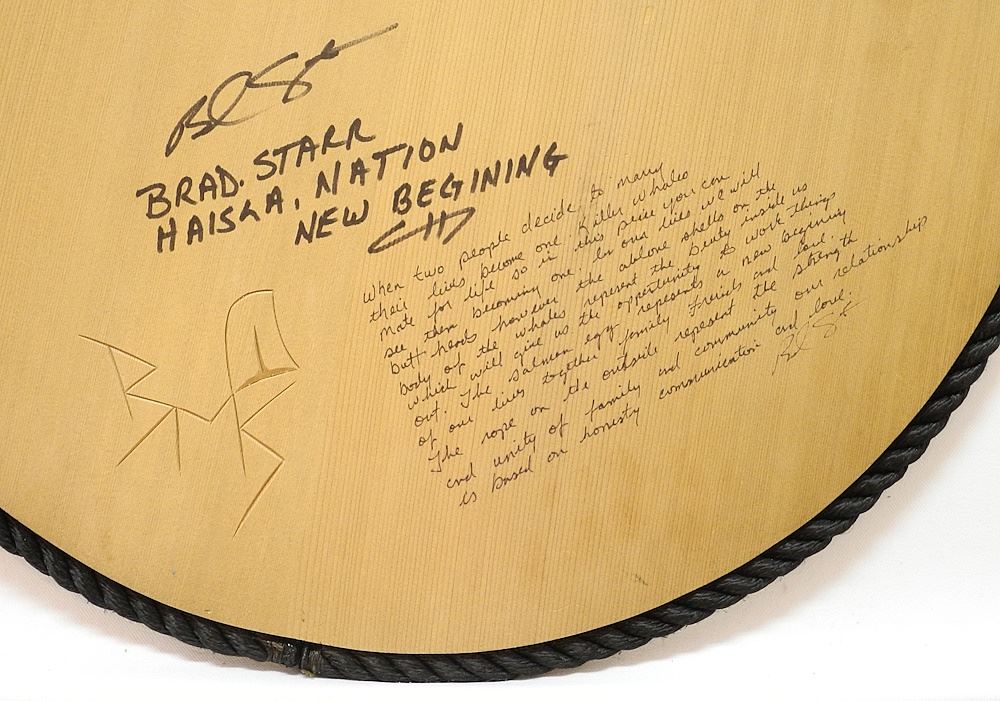 Brad Starr
BRAD. STARR
HAISLA. NATION
NEW BEGINING
When two people decide to marry
their lives become one. Killer whales
mate for life so in this peice you can
see them becoming one. In our lives we will
butt heads however the ablone shells on the
body of the whales represent the beuty inside us
which will give us the opportunity to work things
out. The salmon egg represents a new begining
of our lives together family freinds and soul.
The rope on the outside represent the strength
and unity of family and community our relationship
is based on honesty communication and love.